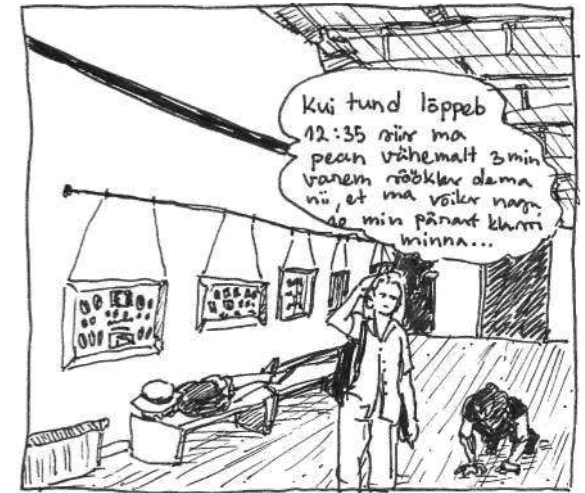 Kui tund lõppeb
12:35 siis ma
pean vähemalt 3 min
varem sööklas olema
nii, et ma võiks nagu
min pärast klassi
minna...